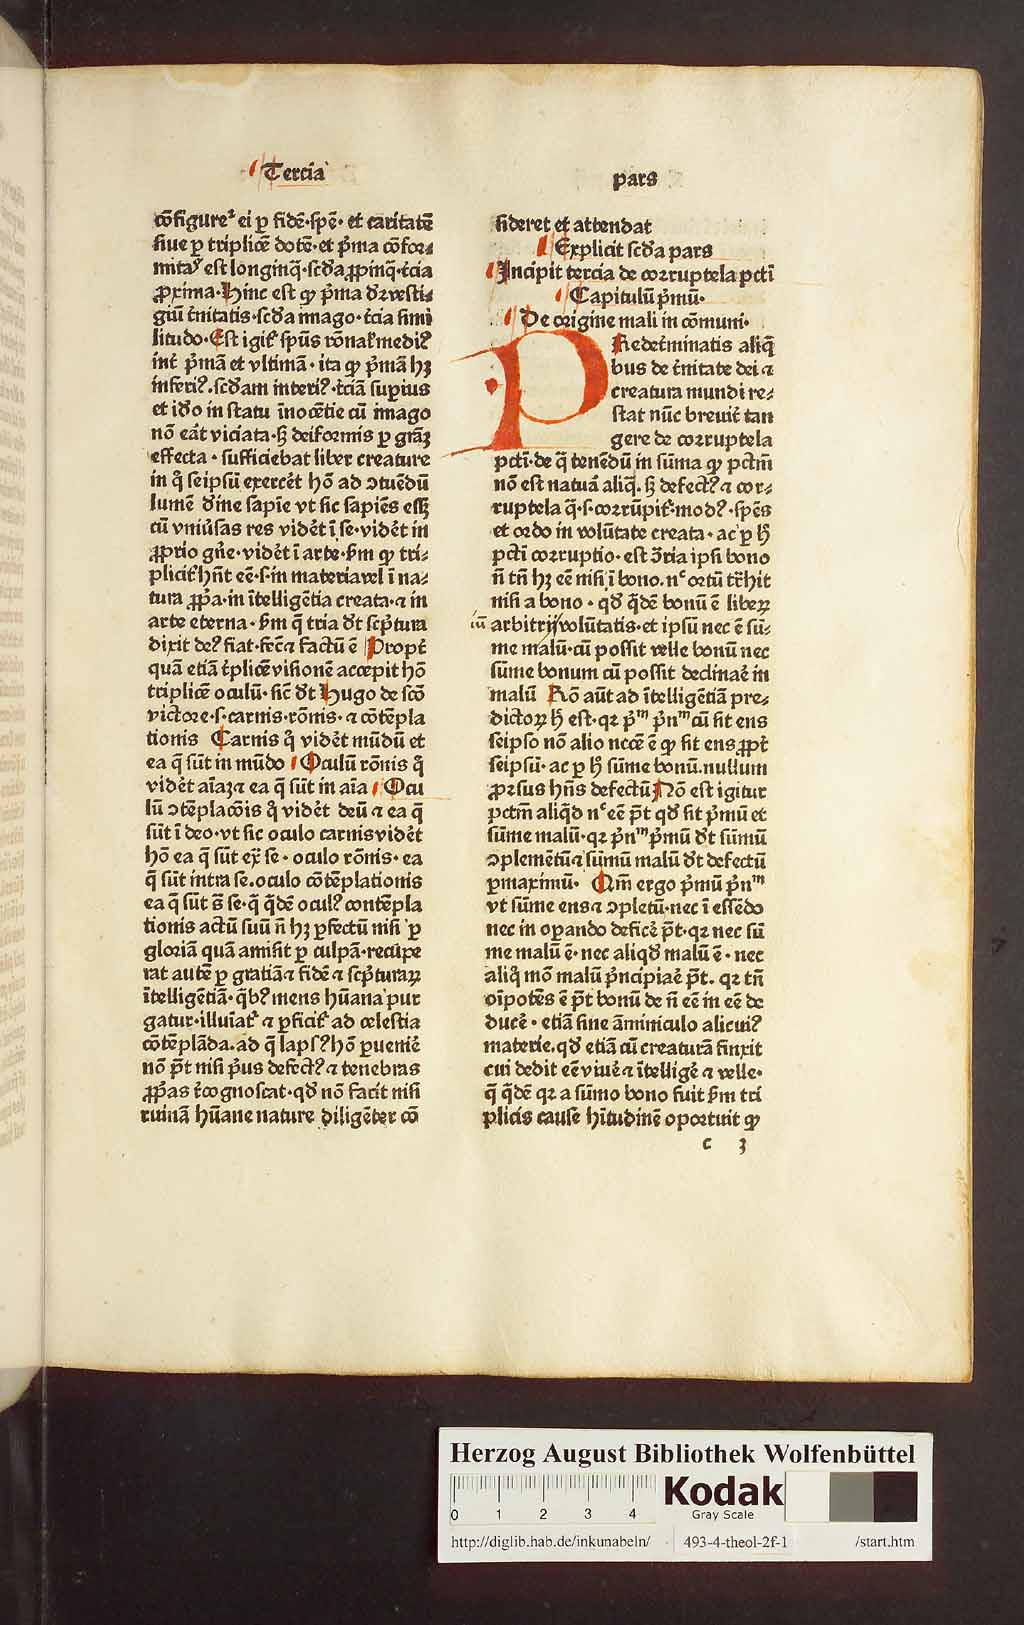 Tercia
pars
cōfigureꝰ ei ꝑ fidē·spē·et caritatē
siue ꝑ triplicē dotē·et p̄ma cōfor⸗
mitaꝰ est longinq̄·scd̄a ꝓpinq̄·t̄cia
ꝓxima·Hinc est ꝙ p̄ma dr̄ vesti⸗
giū t̄nitatis·scd̄a imago·t̄cia simi
litudo·Est igit᷑ spūs rōnal᷑ mediꝰ
int̄ p̄mā et vltimā·ita ꝙ p̄mā hꝫ
inferiꝰ·scd̄am interiꝰ·t̄ciā supius
et id̄o in statu īnocētie cū imago
nō eāt viciata·sꝫ deiformis ꝑ grāꝫ
effecta·sufficiebat liber creature
in qͦ seipsū exercēt hō ad ↄtuēdū
lumē d̄ine sapīe vt sic sapiēs essꝫ
cū vniūsas res vidēt ī se·vidēt in
ꝓprio gn̄e·vidēt ī arte·s̄m ꝙ tri⸗
plicit᷑ hn̄t eē·s·in materia vel ī na⸗
tura ꝓp̄a·in ītelligētia creata·⁊ in
arte eterna·s̄m q̄ tria dt̄ scp̄tura
dixit deꝰ fiat·fec̄ ⁊ factū ē Propt̄
quā etiā t̄plicē visionē accepit hō
triplicē oculū·sic̄ dt̄ Hugo de scō
victore·s·carnis·rōnis·⁊ cōtēpla
tionis Carnis qͦ vidēt mūdū et
ea q̄ sūt in mūdo Oculū rōnis qͦ
vidēt aīaꝫ ⁊ ea q̄ sūt in aīa Ocu
lū ↄtēplacōis qͦ vidēt deū ⁊ ea q̄
sūt ī deo·vt sic oculo carnis vidēt
hō ea q̄ sūt ex̄ se·oculo rōnis·ea
q̄ sūt intra se·oculo cōtēplationis
ea q̄ sūt s̄ se·q̄ qͥdē oculꝰ contēpla
tionis actū suū n̄ hꝫ ꝑfectū nisi ꝑ
gloriā quā amisit ꝑ culpā·recūpe
rat autē ꝑ gratiā ⁊ fidē ⁊ scp̄turaꝝ
ītelligētiā·qͥbꝰ mens hūana pur
gatur·illuīat᷑ ⁊ ꝑficit᷑ ad celestia
cōtēplāda·ad q̄ lapsꝰ hō ꝑueniē
nō pt̄ nisi p̄us defectꝰ ⁊ tenebras
ꝓp̄as rēcognoscat·qd̄ nō facit nisi
ruinā hūane nature diligēter cō
sideret et attendat
Explicit scd̄a pars
Incipit tercia de corruptela pcti
Capitulū p̄mū·
De origine mali in cōmuni·
PRedet̄minatis aliq̄
bus de t̄nitate dei ⁊
creatura mundi re⸗
stat nūc breuit̄ tan
gere de corruptela
pcti·de q̄ tenēdū in sūma ꝙ pctm̄
nō est natuā aliq̄·sꝫ defectꝰ ⁊ cor⸗
ruptela q̄·s·corrūpit᷑·modꝰ·spēs
et ordo in volūtate creata·ac ꝑ hͦ
pcti corruptio·est ↄ̄ria ipsi bono
n̄ tn̄ hꝫ eē nisi ī bono·nͨ ortū tr̄hit
nisi a bono·qd̄ qͥdē bonū ē liberꝫ
iū arbitrij volūtatis·et ipsū nec ē sū⸗
me malū·cū possit velle bonū nec
sūme bonum cū possit declinaē in
malū Rō aūt ad ītelligētiā pre⸗
dictoꝝ hͦ est·qꝛ p̄ᵐ p̄nᵐ cū sit ens
seipso nō alio nccē ē ꝙ sit ens ꝓpt̄
seipsū·ac ꝑ hͦ sūme bonū·nullum
ꝓrsus hn̄s defectū Nō est igitur
pctm̄ aliqd̄ nͨ eē pt̄ qd̄ sit p̄mū et
sūme malū·qꝛ p̄nᵐ p̄mū dt̄ sūmū
ↄplemētū ⁊ sūmū malū dt̄ defectū
ꝑmaximū· Qm̄ ergo p̄mū p̄nᵐ
vt sūme ens ⁊ ↄpletū·nec ī essēdo
nec in oꝑando deficē pt̄·qꝛ nec sū
me malū ē·nec aliqd̄ malū ē·nec
aliqͦ mō malū p̄ncipiaē pt̄·qꝛ tn̄
oīpotēs ē pt̄ bonū de n̄ eē in eē de
ducē·etiā sine āminiculo alicuiꝰ
materie·qd̄ etiā cū creaturā finxit
cui dedit eē viuē ⁊ ītelligē ⁊ velle·
q̄ qͥdē qꝛ a sūmo bono fuit s̄m tri
plicis cause hītudinē oportuit ꝙ
c 3
Herzog August Bibliothek Wolfenbüttel
0 1 2 3 4
Kodak
Gray Scale
http://diglib.hab.de/inkunabeln/ 493-4-theol-2f-1 /start.htm